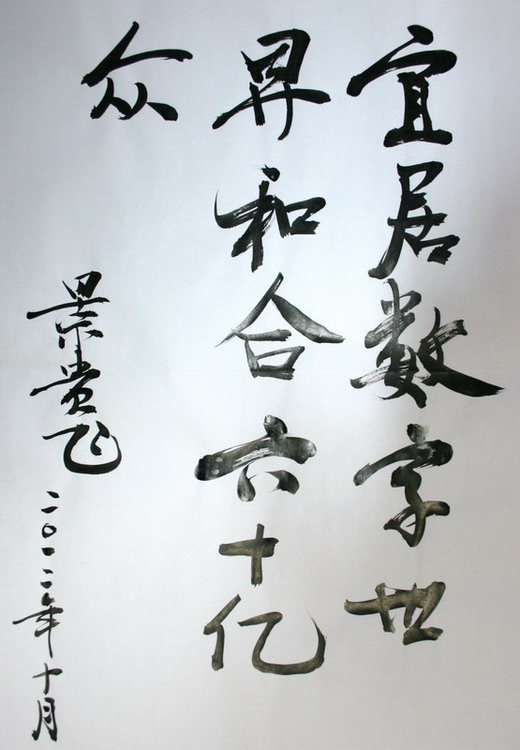 宜居数字世
昇和合六十亿
众
景贵飞
二〇一二年十月